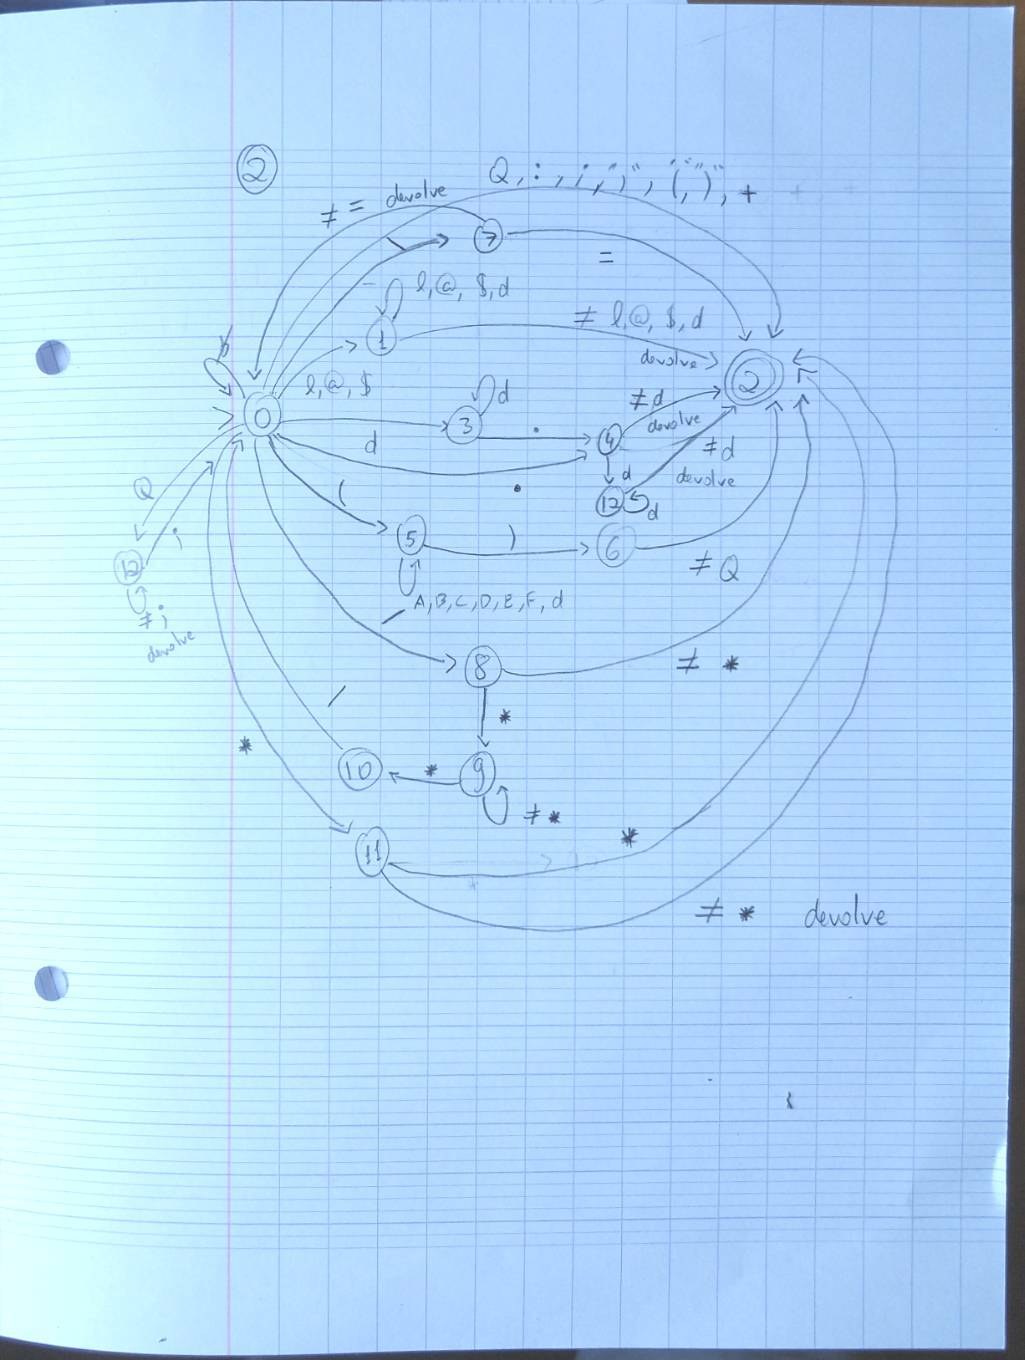 2
Q, : , ; , ")", "(", ")", +
≠ = devolve
\
7
=
l,@, $, d
1
≠ l,@, $, d
devolve
2
b
l,@, $
0
d
3
d
.
4
≠ d
devolve
≠ d
devolve
d
12
d
.
Q
(
5
)
6
≠ Q
12
;
≠ ;
devolve
A,B,C,D,E,F, d
/
8
≠ *
*
/
*
10
*
9
≠ *
11
*
*
≠ * devolve